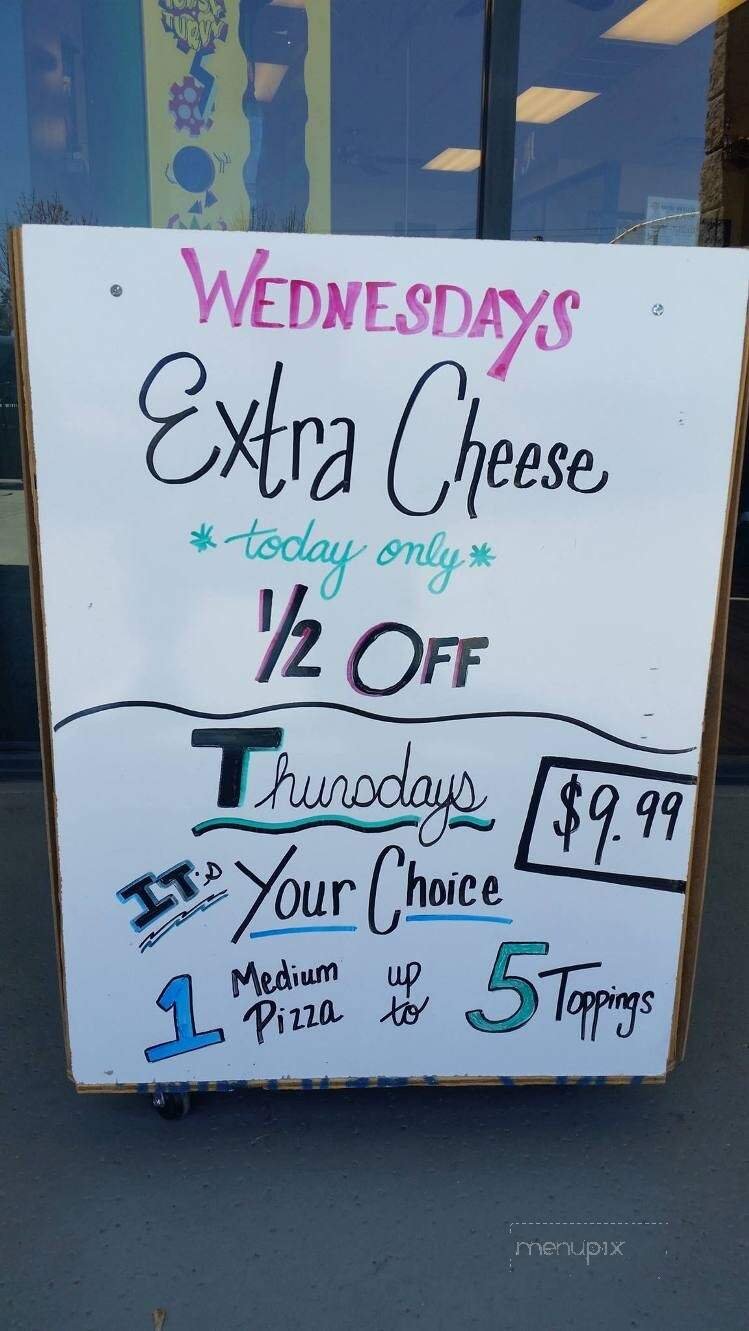 TOPSY
TURVY
WEDNESDAYS
Extra Cheese
*today only*
1/2 OFF
Thursdays
$9.99
IT'S Your Choice
1 Medium Pizza up to 5 Toppings
menupix